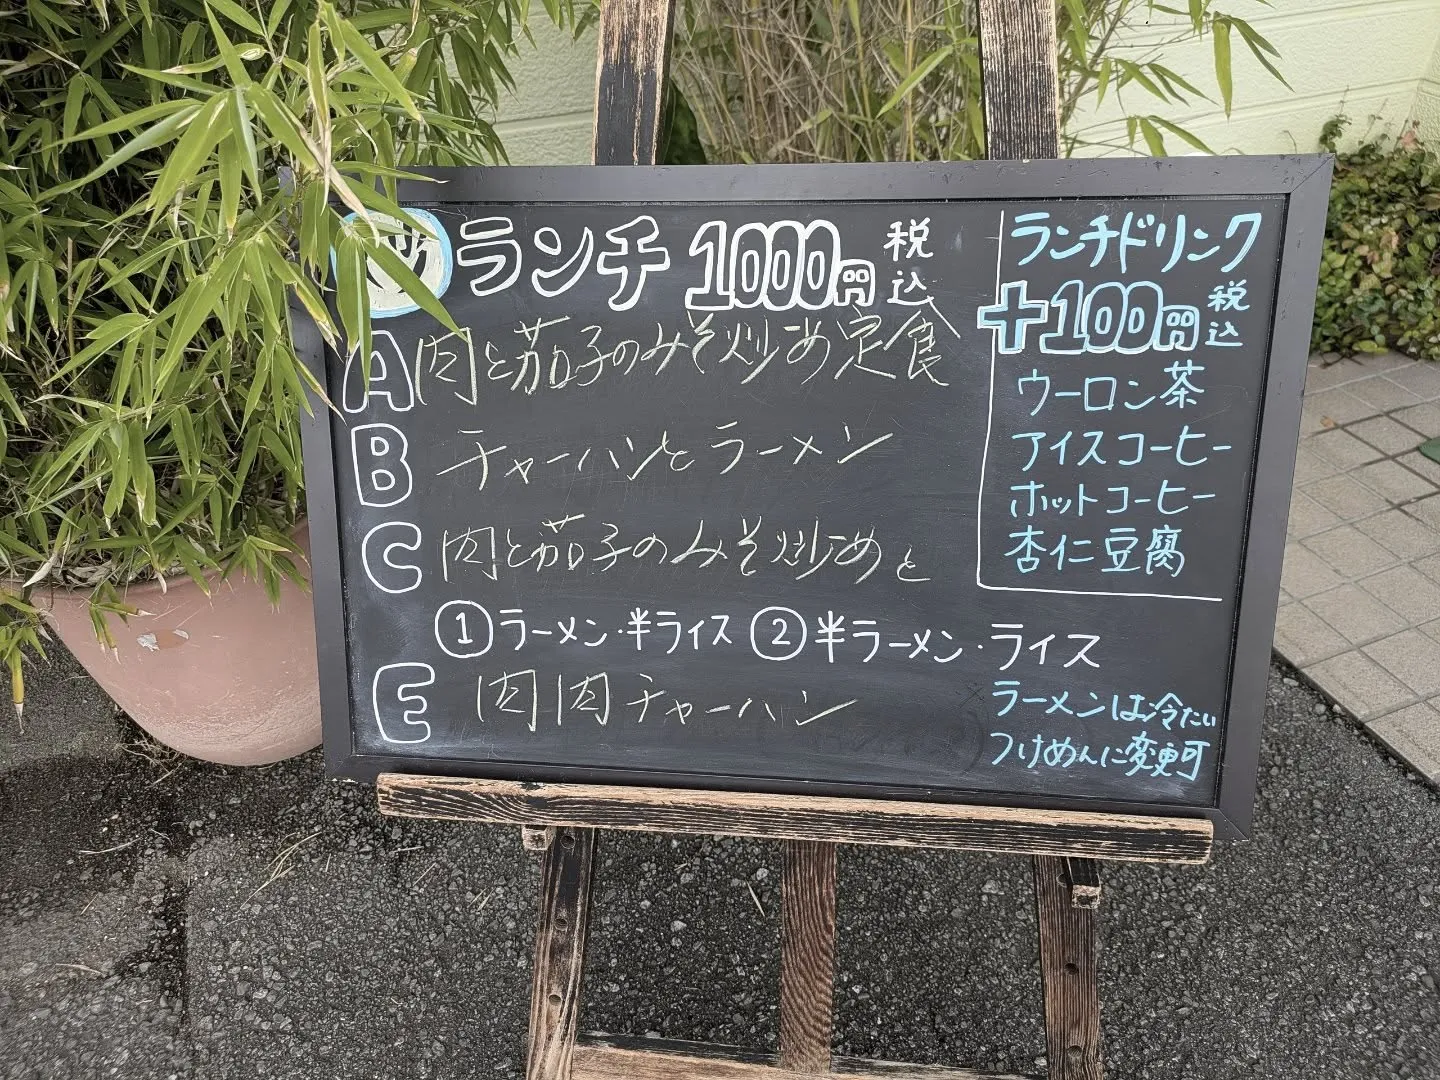 ランチ 1000円 税込
A 肉と茄子のみそ炒め定食
B チャーハンとラーメン
C 肉と茄子のみそ炒めと
①ラーメン・半ライス ②半ラーメン・ライス
E 肉肉チャーハン
ランチドリンク
+100円 税込
ウーロン茶
アイスコーヒー
ホットコーヒー
杏仁豆腐
ラーメンは冷たい
つけめんに変更可